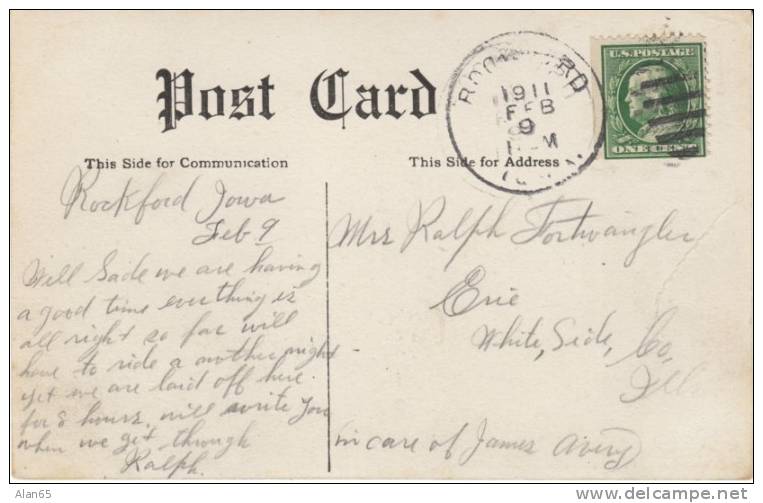 Post Card
This Side for Communication
This Side for Address
ROCKFORD
1911
FEB
9
M
U.S. POSTAGE
ONE CENT
Rockford Iowa
Feb 9
Will Sade we are having
a good time everthing is
all right so far will
have to ride a nother night
yet we are laid off here
for 8 hours. will write you
when we get through
Ralph.
Mrs Ralph Fortwangler
Erie
White, Side, Co,
Ills
in care of James Avery
Alan65
http://www.delcampe.net